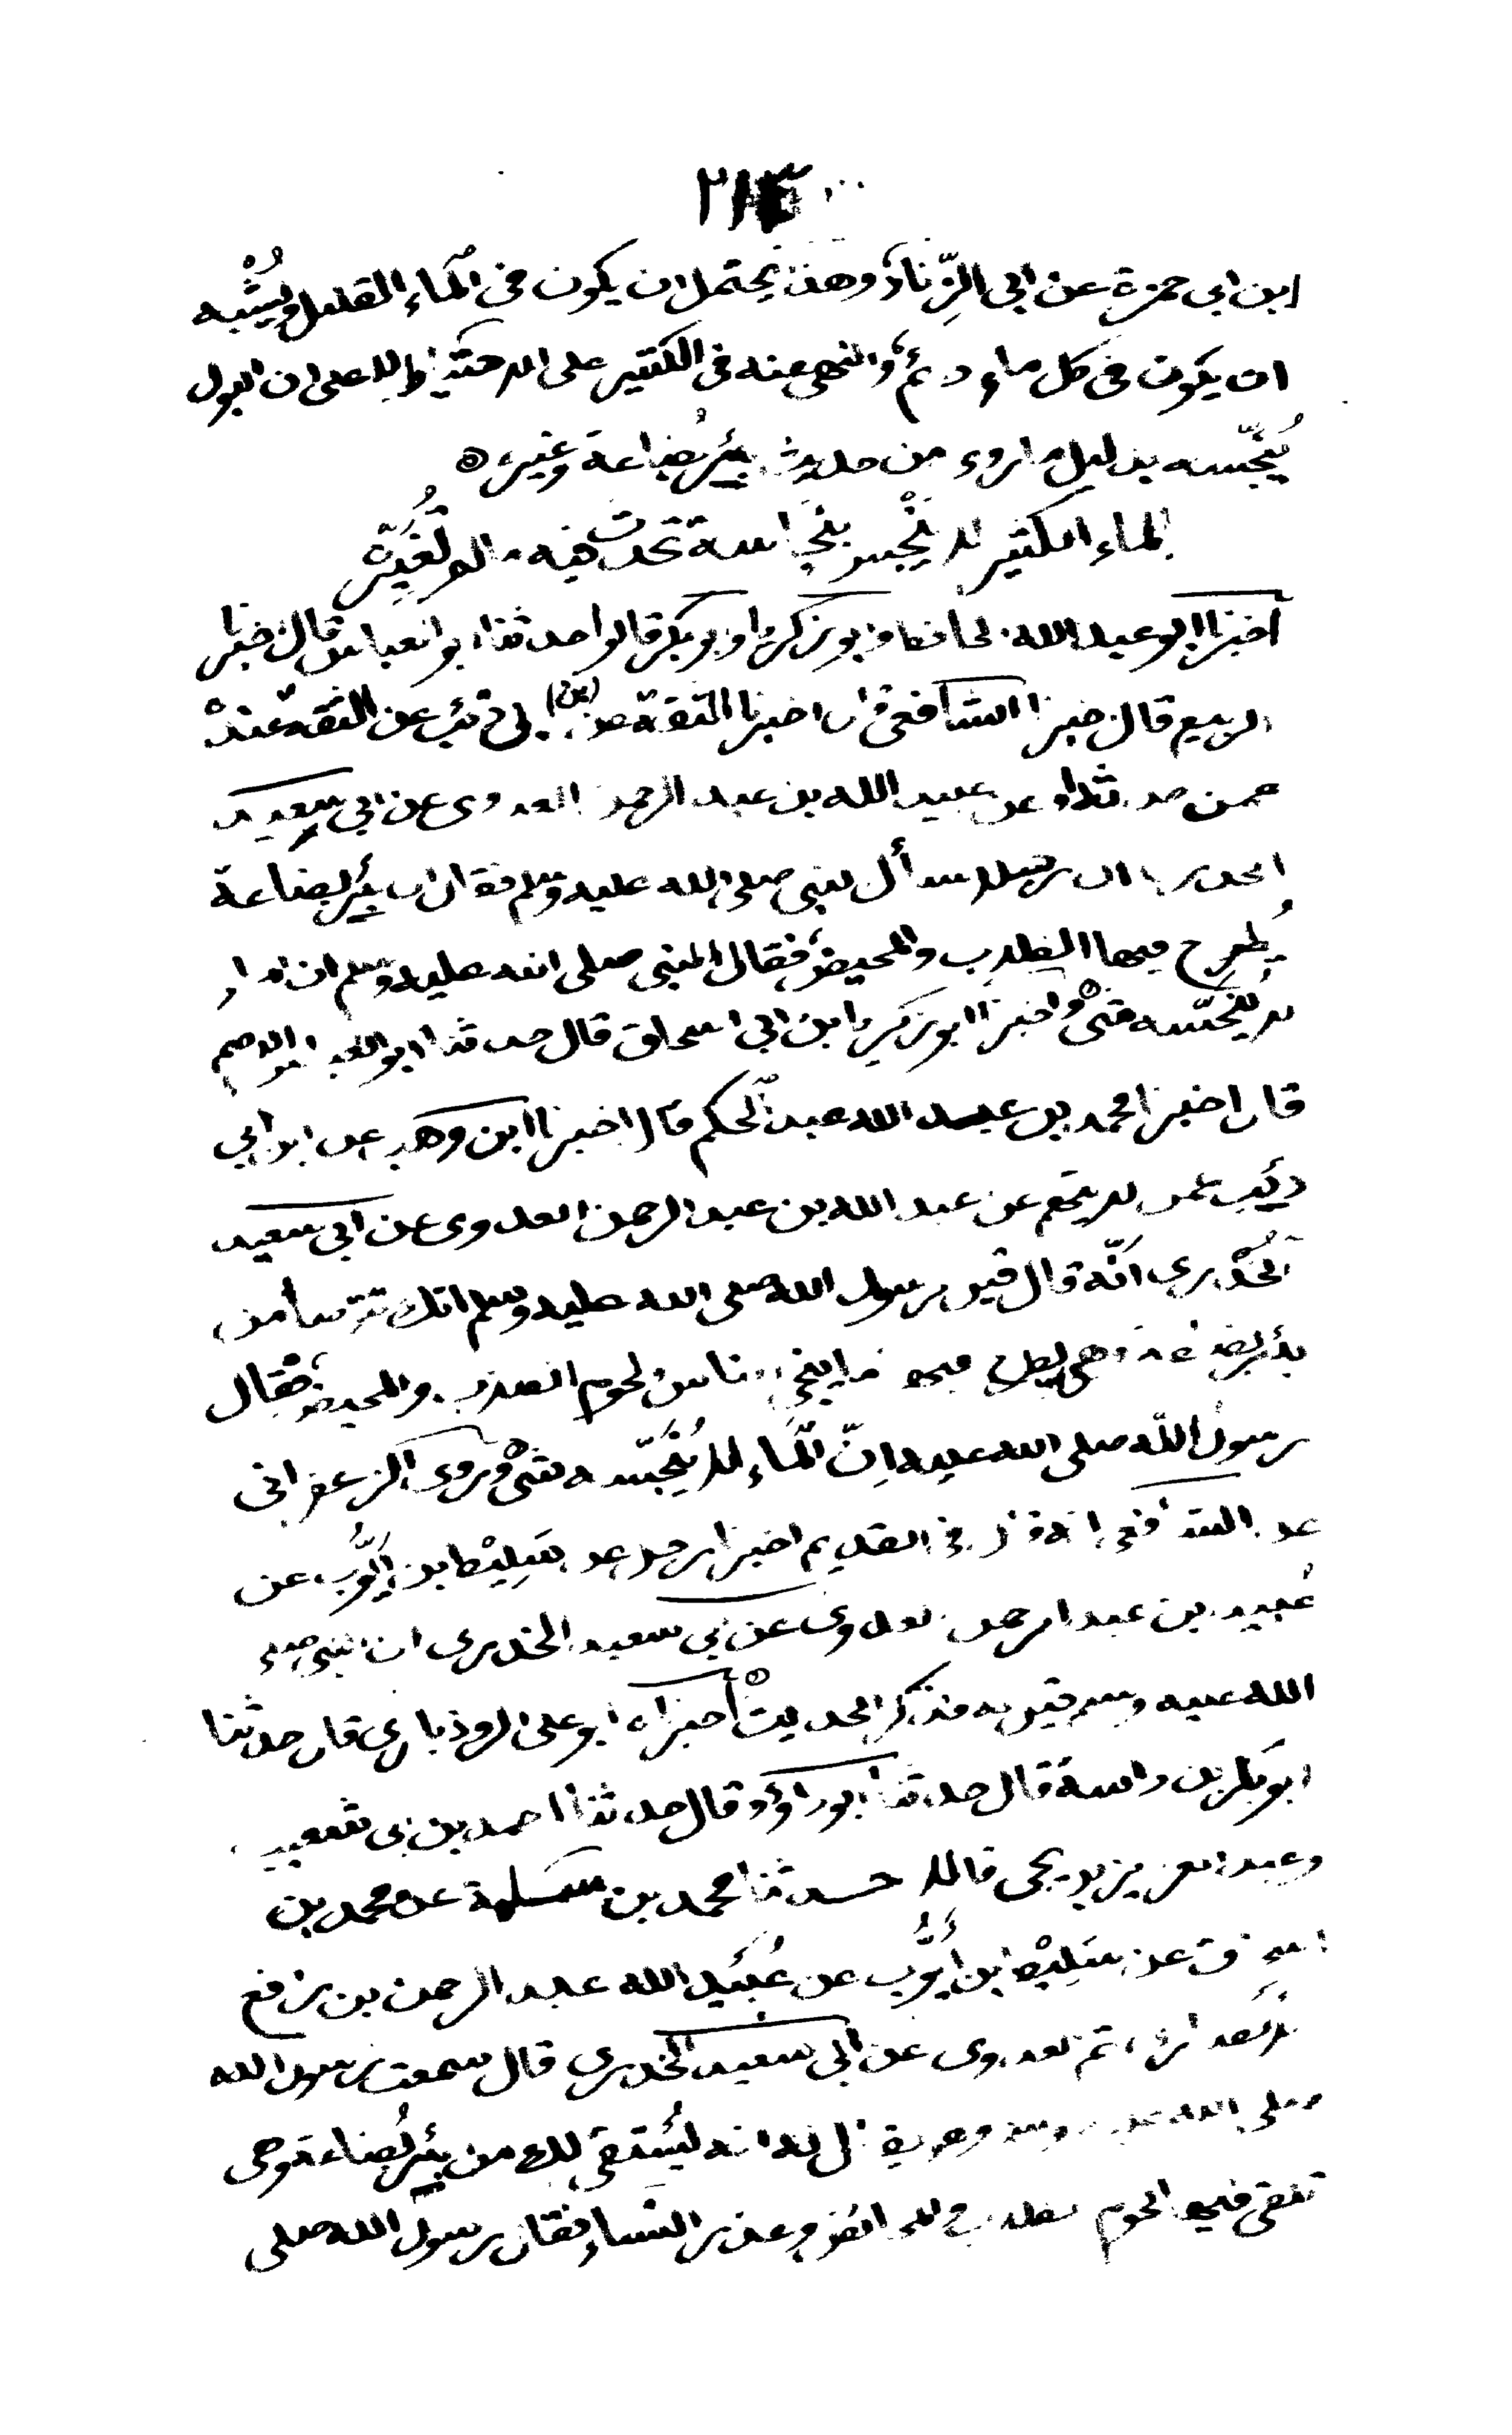 ٢١٣
ابن ابى حمزة عن ابى الزِّناد وهذا يحتمل ان يكون فى الماء القليل ويُشْبه
ان يكون فى كل ماء دائم والنهى عنه فى الكثير على الاختيار لا على ان البول
يُنَجّسه بدليل ما روى من حديث بئر بُضاعة وغيره
الماء الكثير لا يَنْجس بنجاسة تحدث فيه ما لم تُغَيِّرْه
اخبرنا ابو عبد الله الحافظ وابو زكريا وابو بكر قالوا حدثنا ابو العباس قال اخبرنا
الربيع قال اخبرنا الشافعى قال اخبرنا الثقة عن (ابن) ابى ذئب عن الثقة عنده
عمن حدثه او عن عبيد الله بن عبد الرحمن العدوى عن ابى سعيد
الخدرى ان رجلا سأل النبى صلى الله عليه وسلم فقال ان بئر بضاعة
يُطرح فيها الكلاب والمحيض فقال النبى صلى الله عليه وسلم ان الماء
لا يُنَجّسه شىْ واخبرنا ابو زكريا ابن ابى اسحاق قال حدثنا ابو العباس الاصم
قال اخبرنا محمد بن عبد الله عبد الحكم قال اخبرنا ابن وهب عن ابن ابى
ذئب عمن لا يتهم عن عبد الله بن عبد الرحمن العدوى عن ابى سعيد
الخُدْرى انّه قال قيل يرسول الله صلى الله عليه وسلم انك تتوضأ من
بئر بضاعة وهى يطرح فيها ما ينجى الناس ولحوم الكلاب والمحيض فقال
رسول اللّٰه صلى الله عليه اِنّ الْمَاء لا يُنَجِّسه شىْ وروى الزعفرانى
عن الشافعى انه قال فى القديم اخبرنا رجل عن سَلِيْط ابن اَيُّوب عن
عُبيد بن عبد الرحمن العدوى عن ابى سعيد الخدرى ان النبى صلى
الله عليه وسلم قيل له فذكر الحديث اخبرناه ابو على الروذبارى قال حدثنا
ابو بكر بن داسة قال حدثنا ابو داؤد قال حدثنا احمد بن ابى شعيب
وعبد العزيز بن يحى قالا حـدثنا محمد بن سَـلمة عن محمد بن
اسحاق عن سَلِيْط ابن اَيُّوب عن عُبَيْد الله عبد الرحمن بن رافع
الانصارى ثم العدوى عن ابى سعيد الخدرى قال سمعت رسول الله
صلى الله عليه وسلم وهو يقال له انه يُسْتقى لك من بئر بُضاعة وهى
تلقى فيها لحوم الكلاب وعذر النساء فقال رسول الله صلى